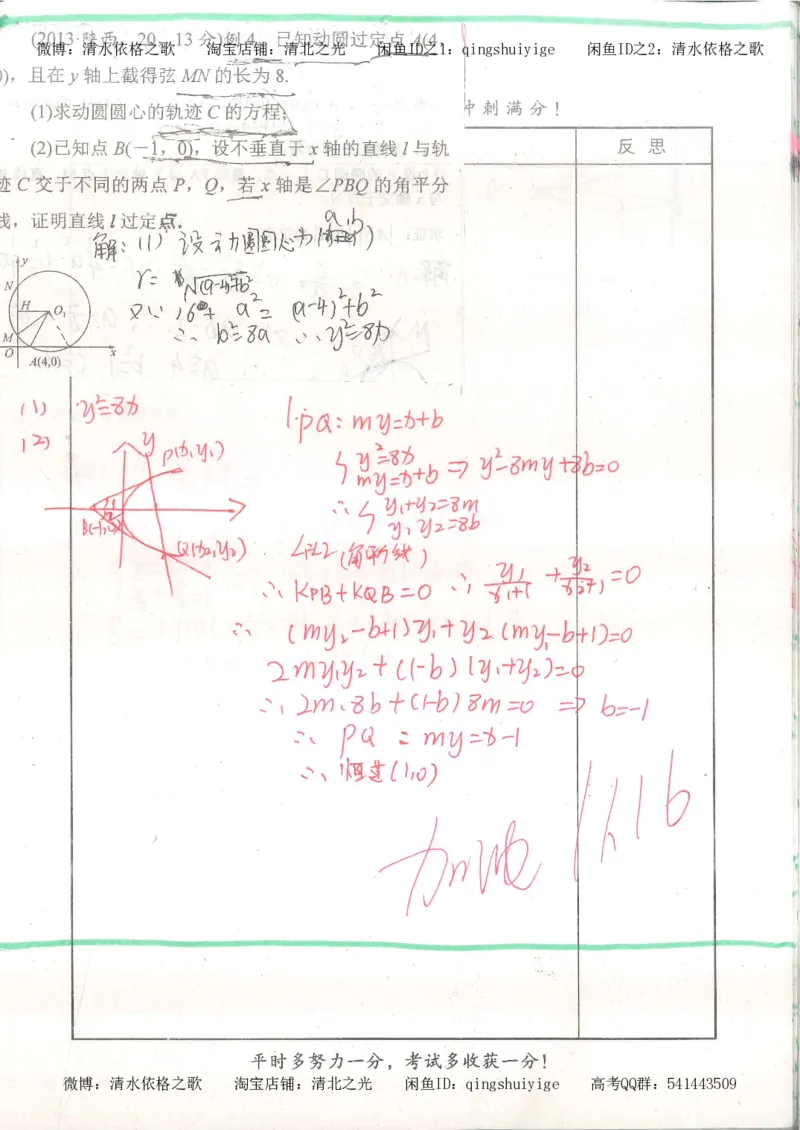 (2013·陕西，20，13分)例4 已知动圆过定点A(4，
微博：清水依格之歌 淘宝店铺：清北之光 闲鱼ID之1：qingshuiyige 闲鱼ID之2：清水依格之歌
0)，且在y轴上截得弦MN的长为8.
(1)求动圆圆心的轨迹C的方程；
冲刺满分！
(2)已知点B(-1，0)，设不垂直于x轴的直线l与轨
反思
迹C交于不同的两点P，Q，若x轴是∠PBQ的角平分
线，证明直线l过定点.
解：(1) 设动圆圆心为(a,b)
r=√(a-4)²+b²
又∵ 16+a²=(a-4)²+b²
∴ b²=8a ∴ y²=8x
y
N
H
O₁
M
O
A(4,0)
x
(1) y²=8x
(2)
y
P(x₁,y₁)
B(-1,0)
Q(x₂,y₂)
l:PQ: my=x+b
{ y²=8x
my=x+b ⇒ y²-8my+8b=0
∴ { y₁+y₂=8m
y₁y₂=8b
∠1=∠2(角平分线)
∴ KPB+KQB=0 ∴ y₁/(x₁+1) + y₂/(x₂+1)=0
∴ (my₂-b+1)y₁+y₂(my₁-b+1)=0
2my₁y₂+(1-b)(y₁+y₂)=0
∴ 2m·8b+(1-b)8m=0 ⇒ b=-1
∴ PQ : my=x-1
∴ 恒过(1,0)
加油
平时多努力一分，考试多收获一分！
微博：清水依格之歌 淘宝店铺：清北之光 闲鱼ID：qingshuiyige 高考QQ群：541443509